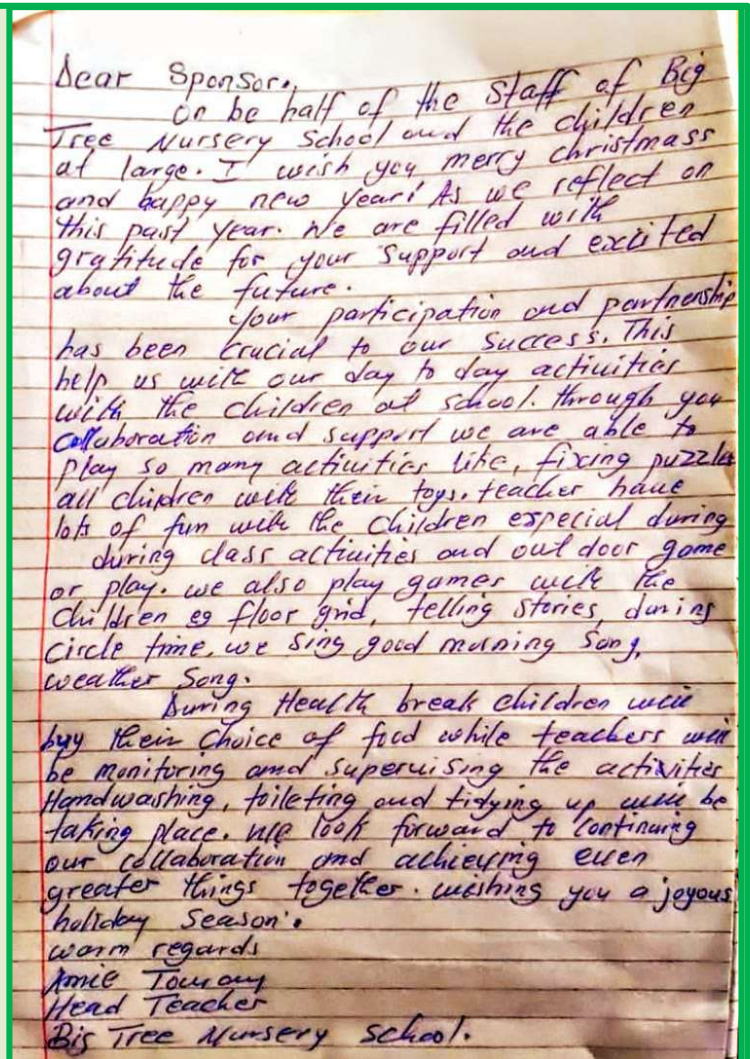 Dear Sponsor.
On be half of the Staff of Big
Tree Nursery School and the children
at large. I wish you merry christmass
and happy new year! As we reflect on
this past year. We are filled with
gratitude for your Support and excited
about the future.
your participation and partnership
has been crucial to our Success. This
help us with our day to day activities
with the children at school. through you
collaboration and support we are able to
play so many activities like, fixing puzzles
all children with their toys. teacher have
lots of fun with the children especial during
during class activities and out door game
or play. we also play games with the
children eg floor grid, telling stories, during
circle time, we sing good morning Song,
weather Song.
During Health break children will
buy their choice of food while teachers will
be monitoring and supervising the activities
Handwashing, toileting and tidying up will be
taking place. We look forward to continuing
our collaboration and achieving even
greater things together. wishing you a joyous
holiday Season.
warm regards
Amie Touray
Head Teacher
Big Tree Nursery School.